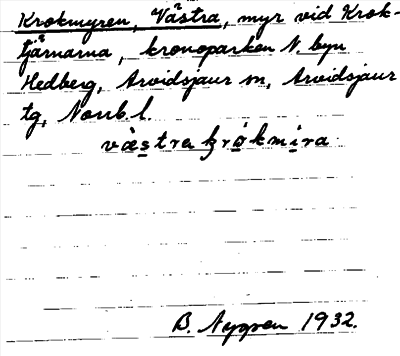 Krokmyren, Västra, myr vid Krok-
tjärnarna, kronoparken N. byn
Hedberg, Arvidsjaur sn, Arvidsjaur
tg, Norrb. l.
væ̀stra krók mira
B. Nygren 1932.